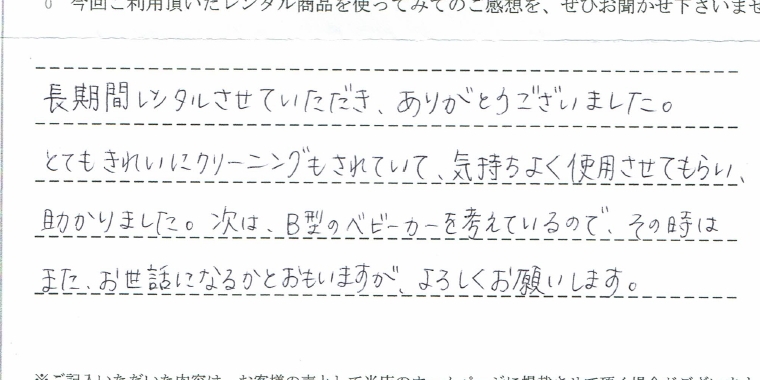 今回ご利用頂いたレンタル商品を使ってみてのご感想を、ぜひお聞かせ下さいませ
長期間レンタルさせていただき、ありがとうございました。
とてもきれいにクリーニングもされていて、気持ちよく使用させてもらい、
助かりました。次は、B型のベビーカーを考えているので、その時は
また、お世話になるかとおもいますが、よろしくお願いします。
※ご記入いただいた内容は、お客様の声として当店のホームページに掲載させて頂く場合がございます